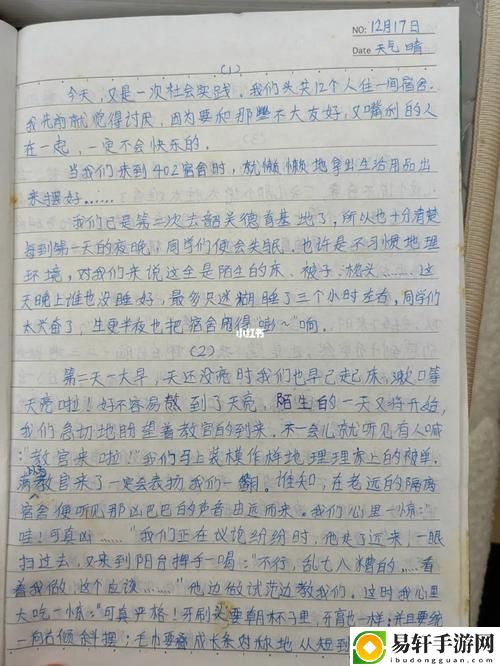 NO: 12月17日
Date 天气 晴
(1)
今天，又是一次社会实践，我们头共12个人住一间宿舍。
我先前就觉得讨厌，因为要和那些不大友好，又嘴利的人
在一起，一定不会快乐的。
当我们来到402宿舍时，就懒懒地拿出生活用品出
来摆好……
我们已是第二次去韶关德育基地了，所以也十分清楚
每到第一天的夜晚，同学们便会失眠，也许是不习惯地理
环境，对我们来说这全是陌生的床、被子、枕头……这
天晚上谁也没睡好，最多只迷糊睡了三个小时左右，同学们
太兴奋了，半夜也把宿舍闹得“澎~”响。
小红书
(2)
第二天一大早，天还没亮时我们也早已起床，漱口等
天亮啦！好不容易熬到了天亮，陌生的一天又将开始，
我们急切地盼望着教官的到来，不一会儿就听见有人喊
：“教官来啦！”我们马上装模作样地理理床上的被单，
教官来了一定会表扬我们一翻。谁知，在老远的隔离
宿舍便听见那凶巴巴的声音由远而来。我们心里一惊：“
哇！可真凶……”我们正在议论纷纷时，他走了近来，一眼
扫过去，又来到阳台挥手一喝：“不行，乱七八糟的……看
着我做，这个应该……”他边做试范边教我们。这时我心里
大吃一惊：“可真严格！牙刷头要朝杯子里，牙膏也一样；并且要统
一向右倾斜摆；毛巾要成长条对称地从短到
易轩手游网
ibudongguan.com